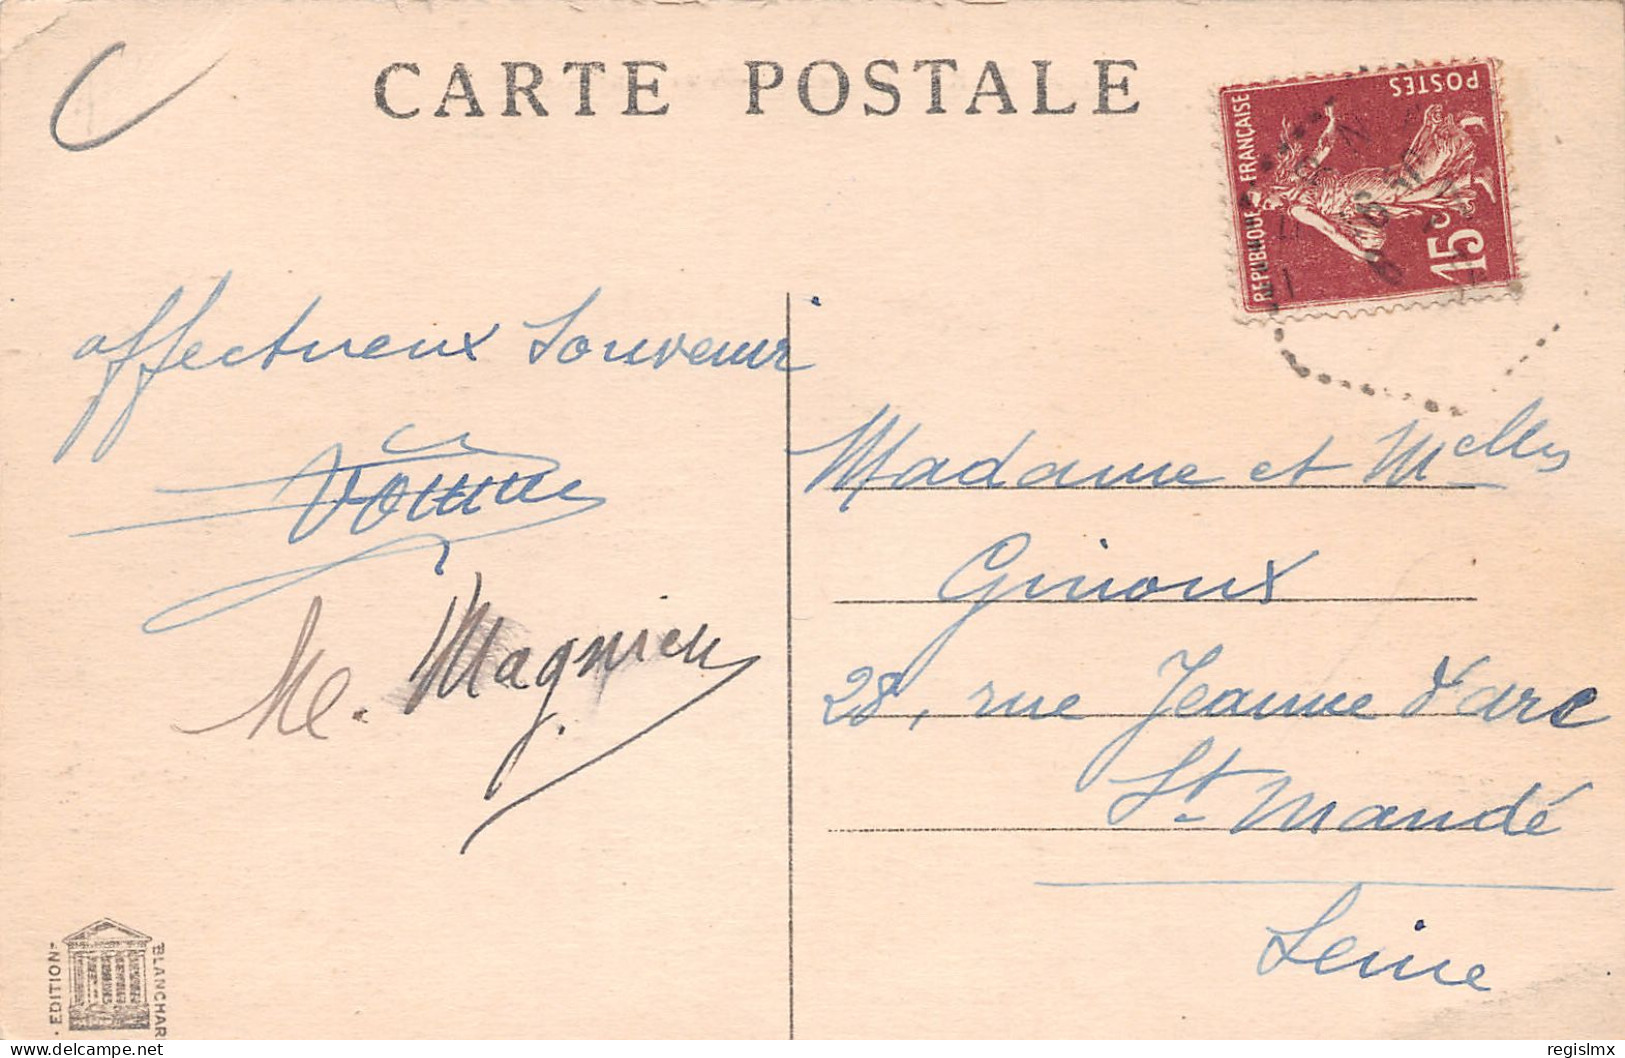 CARTE POSTALE
POSTES
REPUBLIQUE FRANÇAISE
15c
affectueux Souvenir
Me. Magnien
Madame et Melles
Ginoux
28, rue Jeanne d'arc
St Mandé
Seine
• EDITION •
BLANCHAR
delcampe.net
regislmx